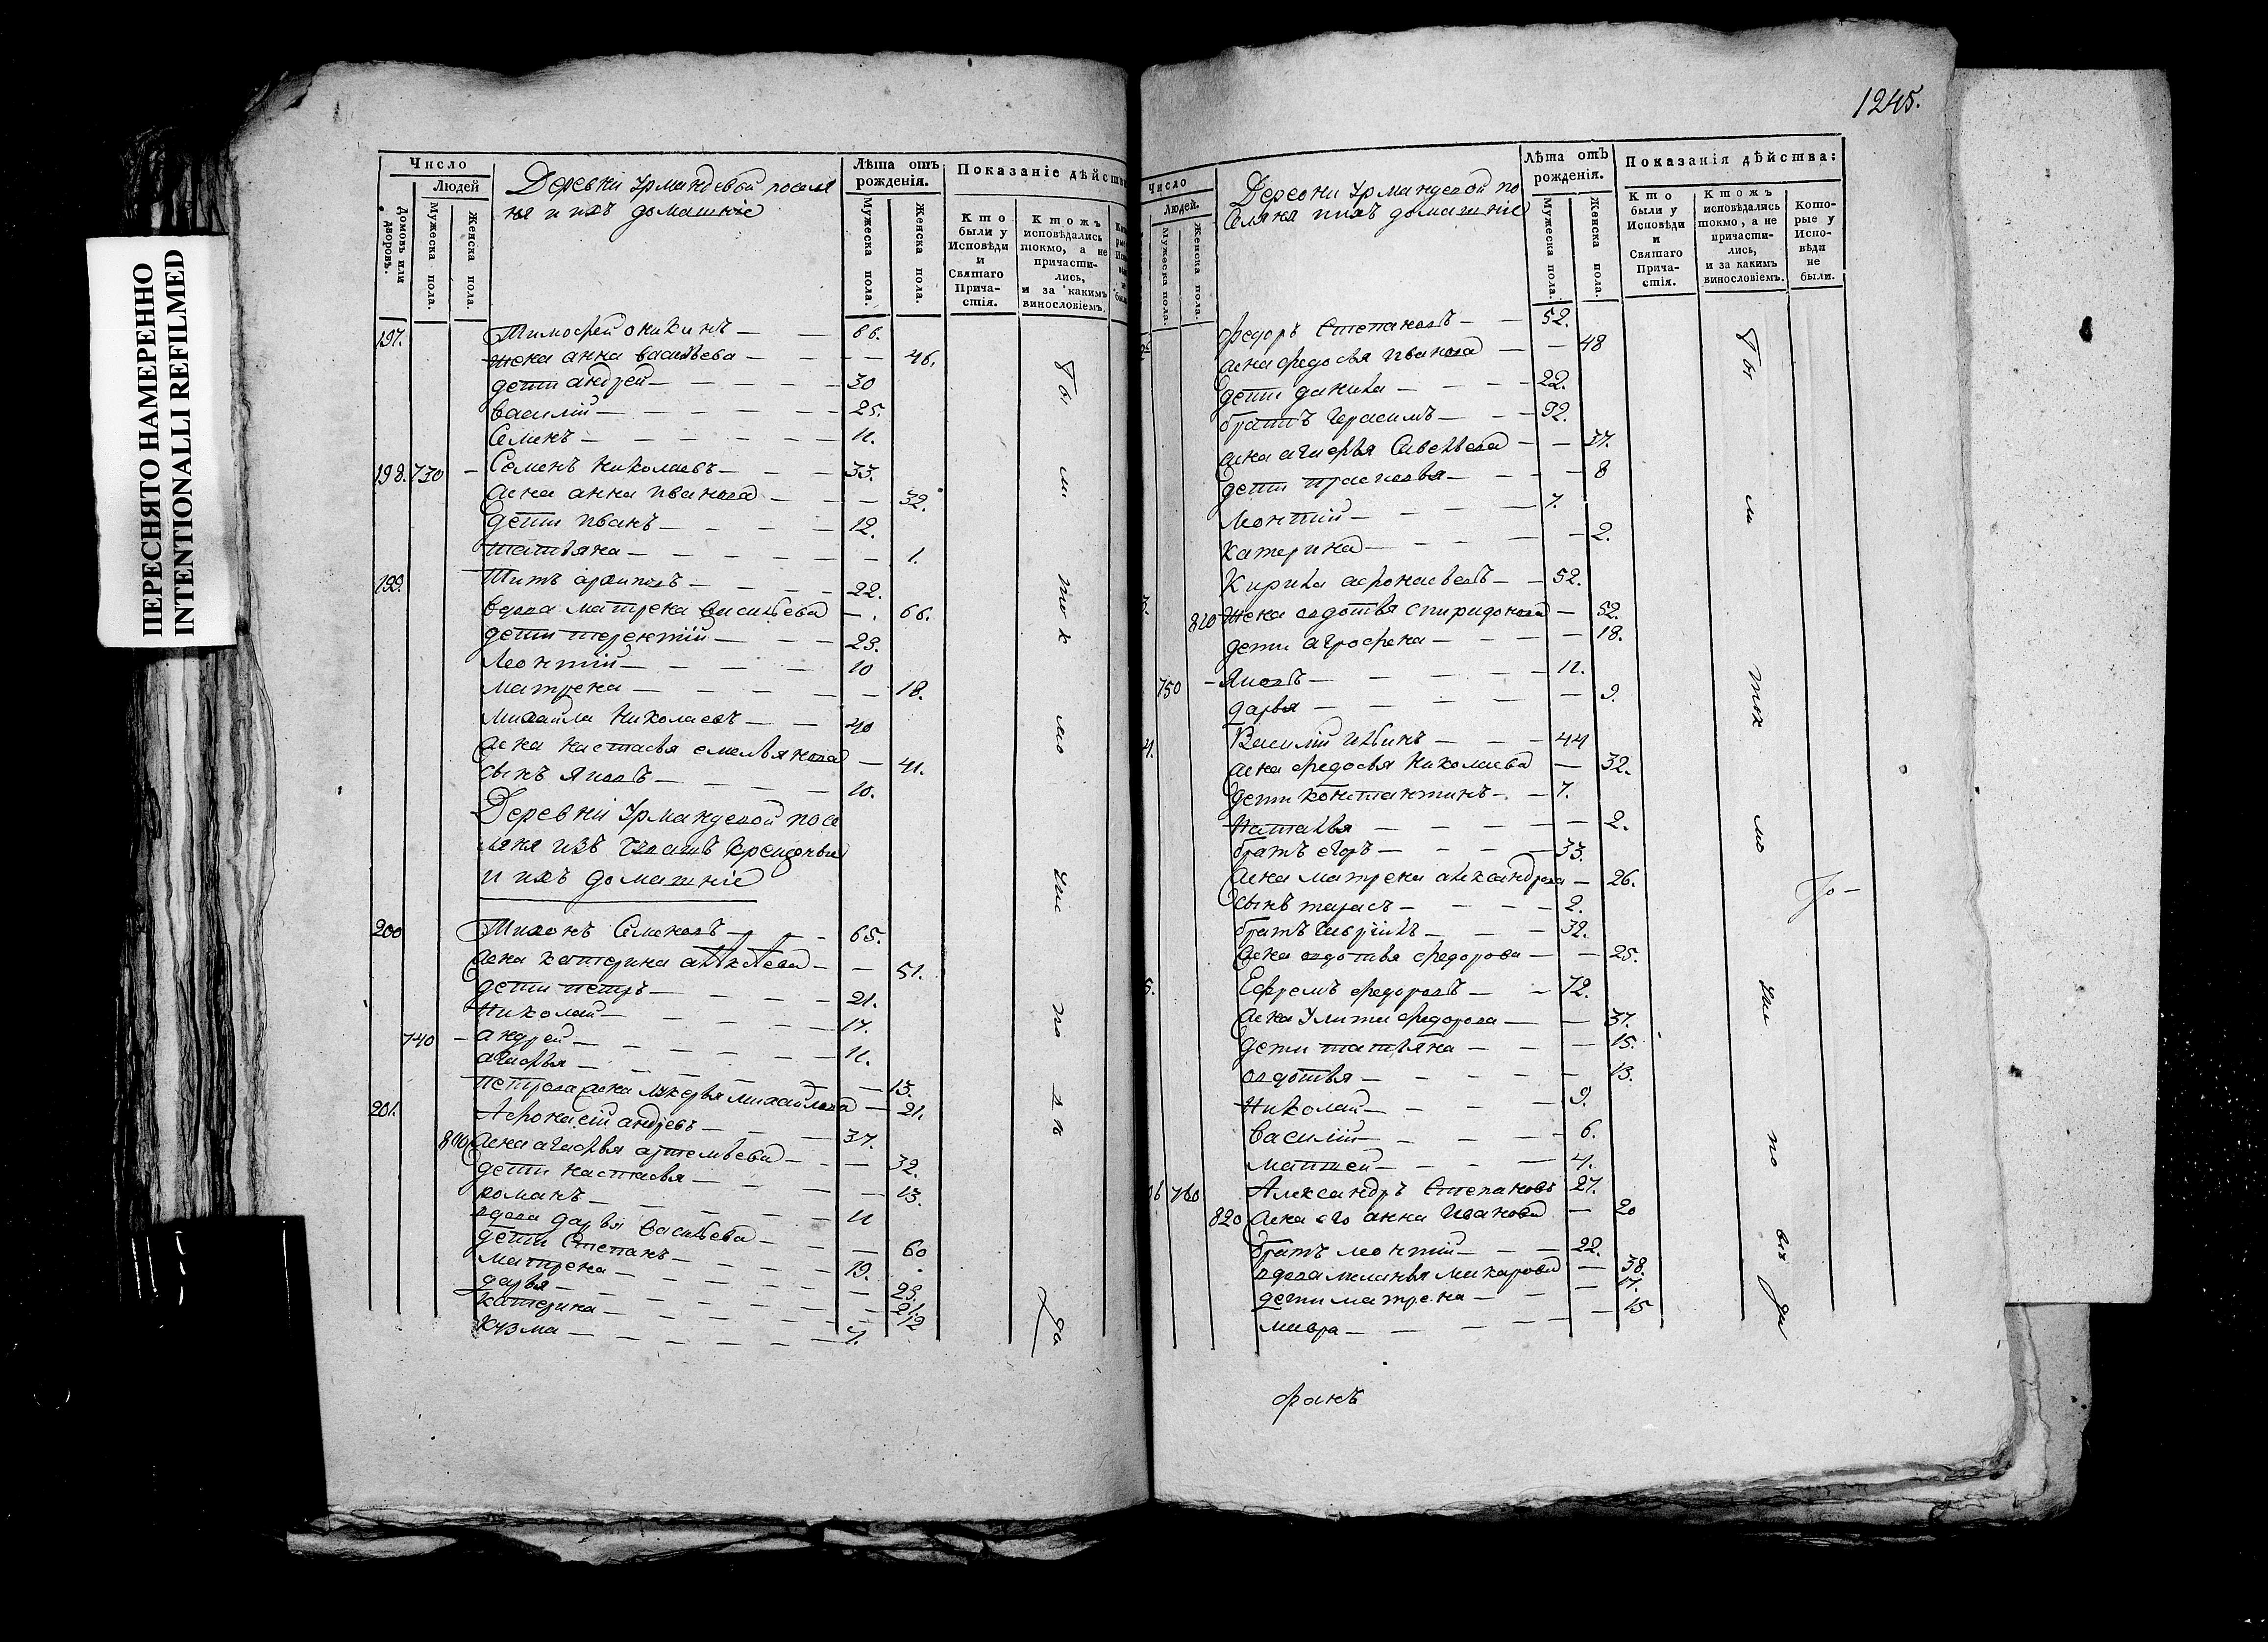 ПЕРЕСНЯТО НАМЕРЕННО
INTENTIONALLI REFILMED
Число
Людей
Домовъ или дворовъ.
Мужеска пола.
Женска пола.
Деревни Урмандевой поселя
не и ихъ домашніе
Лѣта отъ рожденія.
Мужеска пола.
Женска пола.
Показаніе дѣйств
Кто были у Исповѣди и Святаго Прича-стія.
Ктожъ исповѣдались токмо, а не причасти-лись, и за какимъ винословіемъ.
197. Тимофей Оникинъ — — 66.
жена анна васильева — — — 46.
дети андрей — — — 30
василий — — — 25.
Семенъ — — — 11.
198. 730 — Семенъ Николаевъ — — 33.
жена анна иванова — — 32.
дети иванъ — — — 12.
татьяна — — — 1.
199. Титъ архиповъ — — 22.
вдова матрена васильева — 66.
дети терентий — — 23.
Леонтий — — — 10
матрена — — — 18.
михайла Николаевъ — — 40
жена настасья емельянова — 41.
сынъ яковъ — — — 10.
Деревни Урмандевой посе
ляня изъ крещеные
и ихъ домашніе
200 Тихонъ Семеновъ — — 65.
жена катерина алексеева — — 51.
дети петръ — — — 21.
Николай — — — 17.
740 — андрей — — — 11.
агафья — — — 13.
петрова жена лукерья михайлова — 21.
201. Афонасий андреевъ — — 37.
800 жена агафья артемьева — — 32.
дети настасья — — — 13.
романъ — — — 11
вдова дарья васильева — — 60
дети Степанъ — — — 19.
матрена — — — 23.
дарья — — — 21.
катерина — — — 12
кузма — — — 7.
бы
ли
ток
мо
уис
по
вѣ
ди
1245.
Число
Людей.
Мужеска пола.
Женска пола.
Деревни Урмандевой по
селяня и ихъ домашніе
Лѣта отъ рожденія.
Мужеска пола.
Женска пола.
Показанія дѣйства:
Кто были у Исповѣди и Святаго Прича-стія.
Ктожъ исповѣдались токмо, а не причасти-лись, и за какимъ винословіемъ.
Кото-рые у Испо-вѣди не были.
Федоръ Степановъ — — 52.
жена федосья иванова — — 48
дети данила — — — 22.
братъ Герасимъ — — 32.
жена агафья Савельева — — 37.
дети прасковья — — — 8
Леонтий — — — 7.
катерина — — — 2.
Кирила афонасьевъ — — 52.
810 жена авдотья спиридонова — 52.
дети агрофена — — — 18.
750 — Яковъ — — — 11.
дарья — — — 9.
4. Василий Ильинъ — — 44
жена федосья Николаева — 32.
дети константинъ — — 7.
Наталья — — — 2.
братъ егоръ — — — 33.
жена матрена александрова — 26.
сынъ тарасъ — — — 2.
братъ Гаврила — — — 32.
жена авдотья федорова — — 25.
5. Ефремъ федоровъ — — 72.
жена Улита федорова — — 37.
дети татьяна — — — 15.
авдотья — — — 13.
Николай — — — 9.
василий — — — 6.
матвей — — — 4.
06 760 Александръ Степановъ 27.
820 жена его анна Иванова — 20
братъ леонтий — — 22.
вдова меланья макарова — 38.
дети матрена — — — 17.
мавра — — — 15
бы
ли
ток
мо
уис
по
вѣ
ди
фанъ